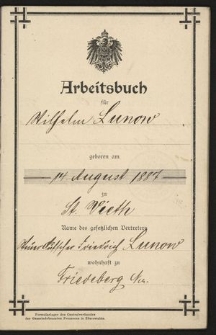 Arbeitsbuch
für
Wilhelm Lunow
geboren am
14 August 1887
zu
St. Vieth
Name des gesetzlichen Vertreters
Friedrich Lunow
wohnhaft zu
Friedeberg